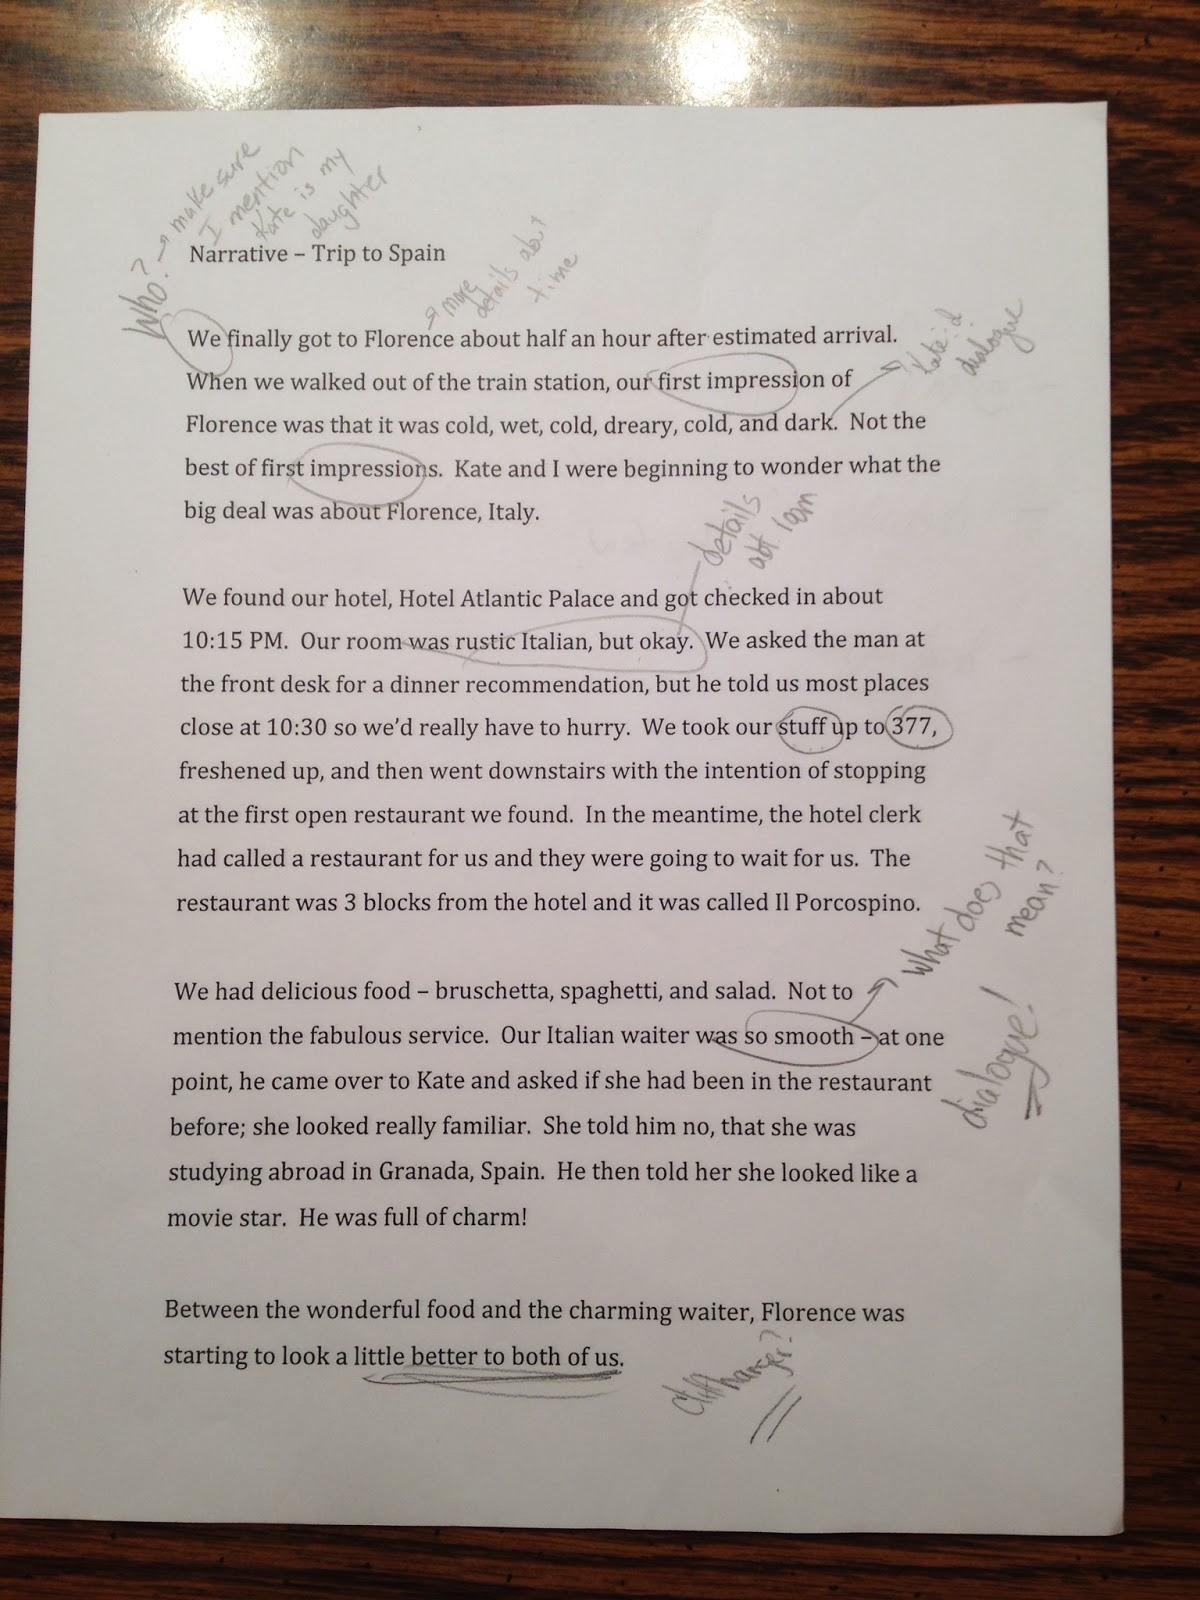 Who? → make sure
I mention
Kate is my
daughter
Narrative – Trip to Spain
→ more
details about
time
We finally got to Florence about half an hour after estimated arrival.
When we walked out of the train station, our first impression of
Kate: d
dialogue
Florence was that it was cold, wet, cold, dreary, cold, and dark.  Not the
best of first impressions.  Kate and I were beginning to wonder what the
big deal was about Florence, Italy.
details
abt room
We found our hotel, Hotel Atlantic Palace and got checked in about
10:15 PM.  Our room was rustic Italian, but okay.  We asked the man at
the front desk for a dinner recommendation, but he told us most places
close at 10:30 so we'd really have to hurry.  We took our stuff up to 377,
freshened up, and then went downstairs with the intention of stopping
at the first open restaurant we found.  In the meantime, the hotel clerk
had called a restaurant for us and they were going to wait for us.  The
restaurant was 3 blocks from the hotel and it was called Il Porcospino.
What does that
mean?
We had delicious food – bruschetta, spaghetti, and salad.  Not to
mention the fabulous service.  Our Italian waiter was so smooth – at one
dialogue!
point, he came over to Kate and asked if she had been in the restaurant
before; she looked really familiar.  She told him no, that she was
studying abroad in Granada, Spain.  He then told her she looked like a
movie star.  He was full of charm!
Between the wonderful food and the charming waiter, Florence was
starting to look a little better to both of us.
Cliffhanger?